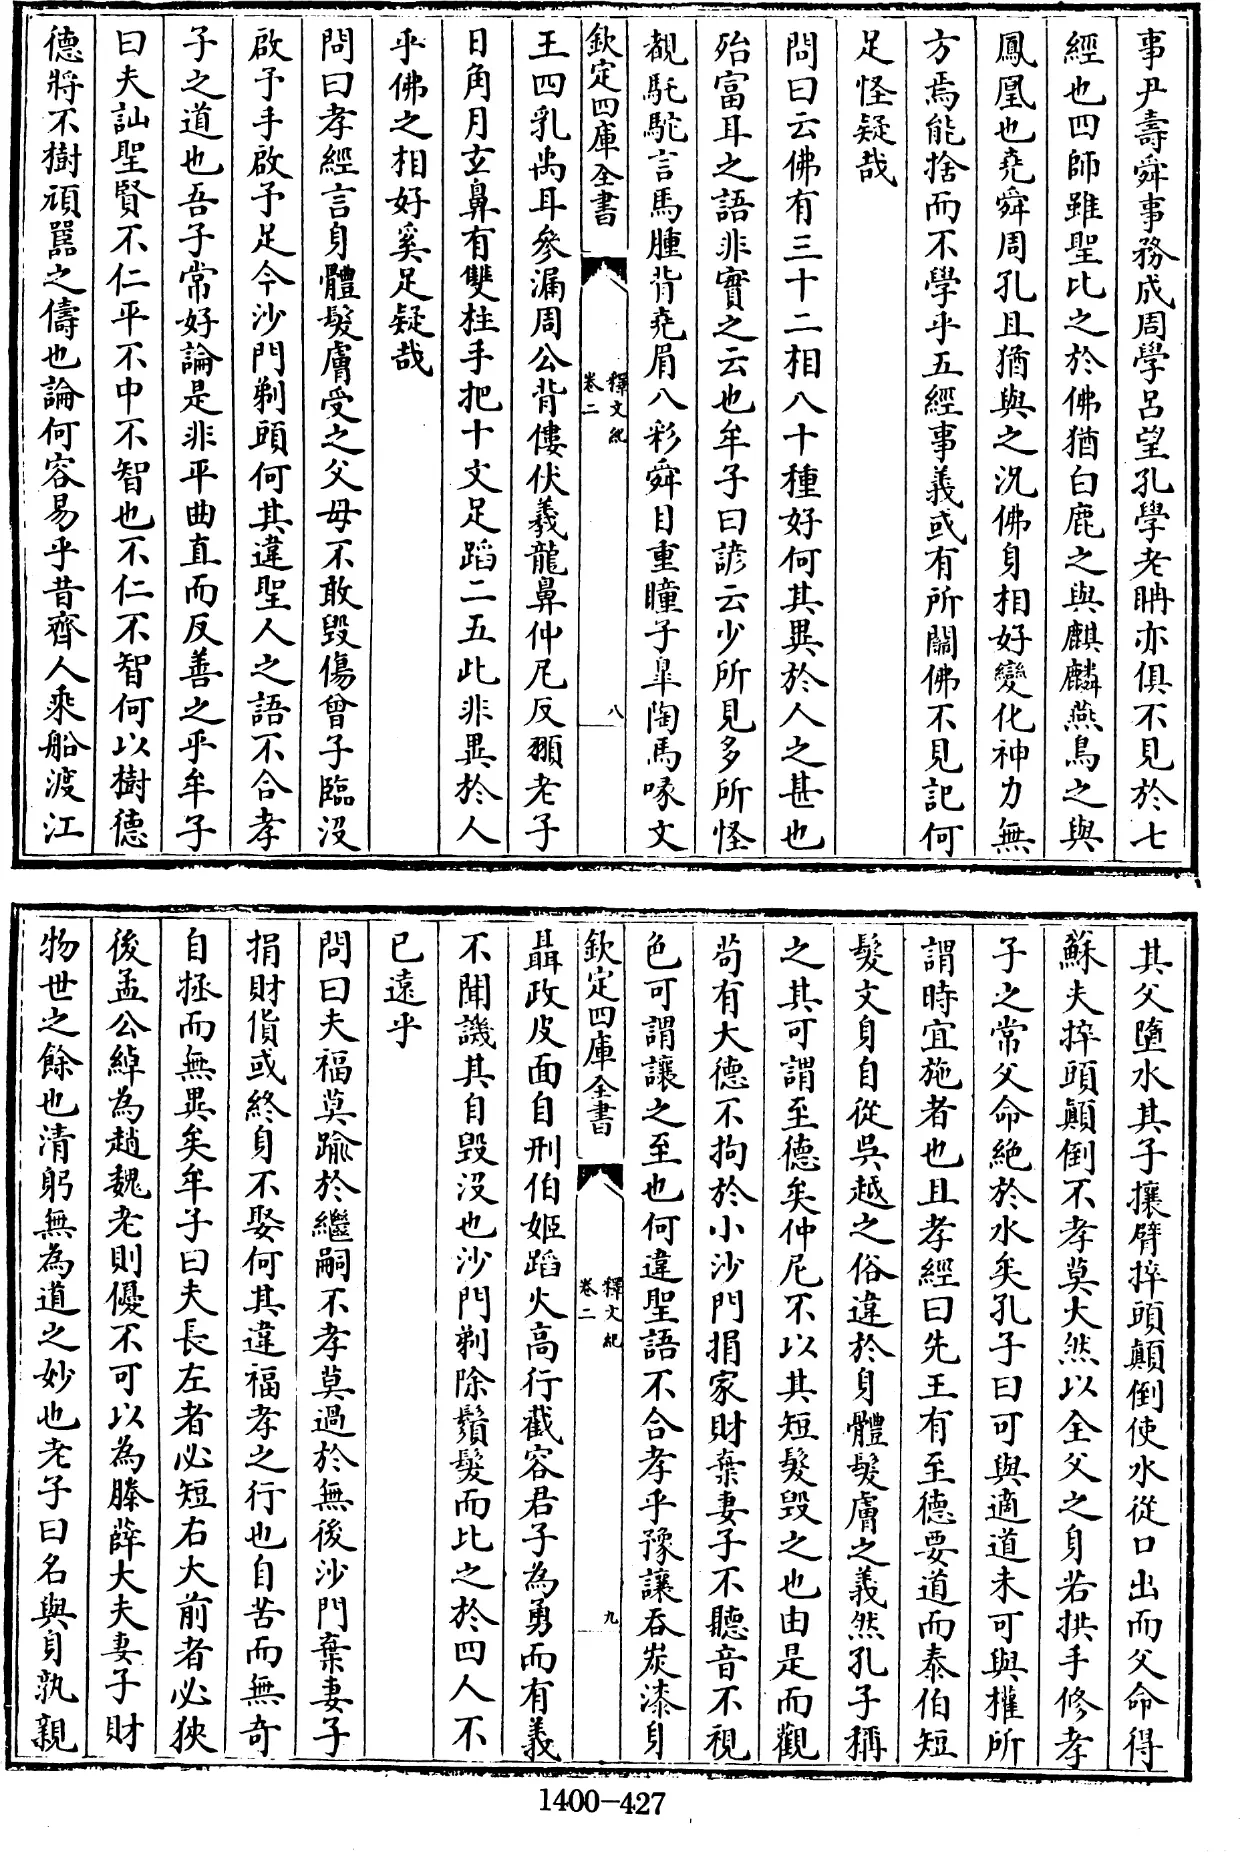 事尹壽舜事務成周學呂望孔學老聃亦俱不見於七
經也四師雖聖比之於佛猶白鹿之與麒麟燕鳥之與
鳳凰也堯舜周孔且猶與之況佛身相好變化神力無
方焉能捨而不學乎五經事義或有所闕佛不見記何
足怪疑哉
問曰云佛有三十二相八十種好何其異於人之甚也
殆富耳之語非實之云也牟子曰諺云少所見多所怪
覩馲駝言馬腫背堯眉八彩舜目重瞳子臯陶馬喙文
欽定四庫全書
釋文紀
卷二
八
王四乳禹耳參漏周公背僂伏羲龍鼻仲尼反頨老子
日角月玄鼻有雙柱手把十文足蹈二五此非異於人
乎佛之相好奚足疑哉
問曰孝經言身體髮膚受之父母不敢毀傷曾子臨沒
啟予手啟予足今沙門剃頭何其違聖人之語不合孝
子之道也吾子常好論是非平曲直而反善之乎牟子
曰夫訕聖賢不仁平不中不智也不仁不智何以樹德
德將不樹頑嚚之儔也論何容易乎昔齊人乘船渡江
其父墮水其子攘臂捽頭顛倒使水從口出而父命得
蘇夫捽頭顛倒不孝莫大然以全父之身若拱手修孝
子之常父命絕於水矣孔子曰可與適道未可與權所
謂時宜施者也且孝經曰先王有至德要道而泰伯短
髮文身自從吳越之俗違於身體髮膚之義然孔子稱
之其可謂至德矣仲尼不以其短髮毀之也由是而觀
苟有大德不拘於小沙門捐家財棄妻子不聽音不視
色可謂讓之至也何違聖語不合孝乎豫讓吞炭漆身
欽定四庫全書
釋文紀
卷二
九
聶政皮面自刑伯姬蹈火高行截容君子為勇而有義
不聞譏其自毀沒也沙門剃除鬚髮而比之於四人不
已遠乎
問曰夫福莫踰於繼嗣不孝莫過於無後沙門棄妻子
捐財貨或終身不娶何其違福孝之行也自苦而無奇
自拯而無異矣牟子曰夫長左者必短右大前者必狹
後孟公綽為趙魏老則優不可以為滕薛大夫妻子財
物世之餘也清躬無為道之妙也老子曰名與身孰親
1400-427